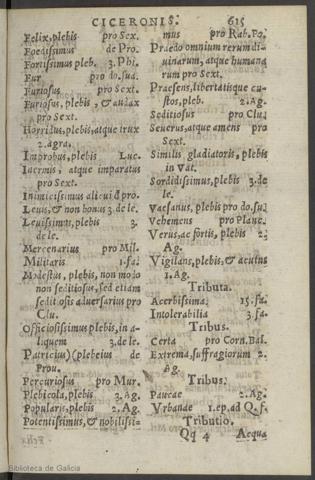 CICERONIS. 615
Felix, plebis pro Sex.
Foedissimus de Pro.
Fortissimus pleb. 3. Phi.
Fur pro do. sua.
Furiosus pro Sext.
Furiosus, plebis, & audax
pro Sext.
Horridus, plebis, atque trux
2. agra.
Improbus, plebis Luc.
Inermis, atque imparatus
pro Sext.
Inimicissimus alicui
Leuis, & non bonus 3. de le.
Leuissimus, plebis 3.
de le.
Mercenarius pro Mil.
Militaris 1. fa.
Modestus, plebis, non modo
non seditiosus, sed etiam
seditiosis aduersarius pro
Clu.
Officiosissimus plebis, in a-
liquem 3. de le.
Patricius) (plebeius de
Prou.
Percuriosus pro Mur.
Plebicola, plebis 3. Ag.
Popularis, plebis 2. Ag.
Potentissimus, & nobilissi-
mus pro Rab. Po.
Praedo omnium rerum di-
uinarum, atque humana
rum pro Sext.
Praesens, libertatisque cu-
stos, pleb. 2. Ag.
Seditiosus pro Clu.
Seuerus, atque amens pro
Sext.
Similis gladiatoris, plebis
in Vat.
Sordidissimus, plebis 3. de
le.
Vaesanus, plebis pro do. su.
Vehemens pro Planc.
Verus, ac fortis, plebis 2.
Ag.
Vigilans, plebis, & acutus
1. Ag.
Tributa.
Acerbissima. 15. fa.
Intolerabilia 3. fa.
Tribus.
Certa pro Corn. Bal.
Extrema, suffragiorum 2.
Ag.
Tribus.
Paucae 2. Ag.
Vrbanae 1. ep. ad Q. f.
Tributio.
Qq 4 Aequa
Biblioteca de Galicia